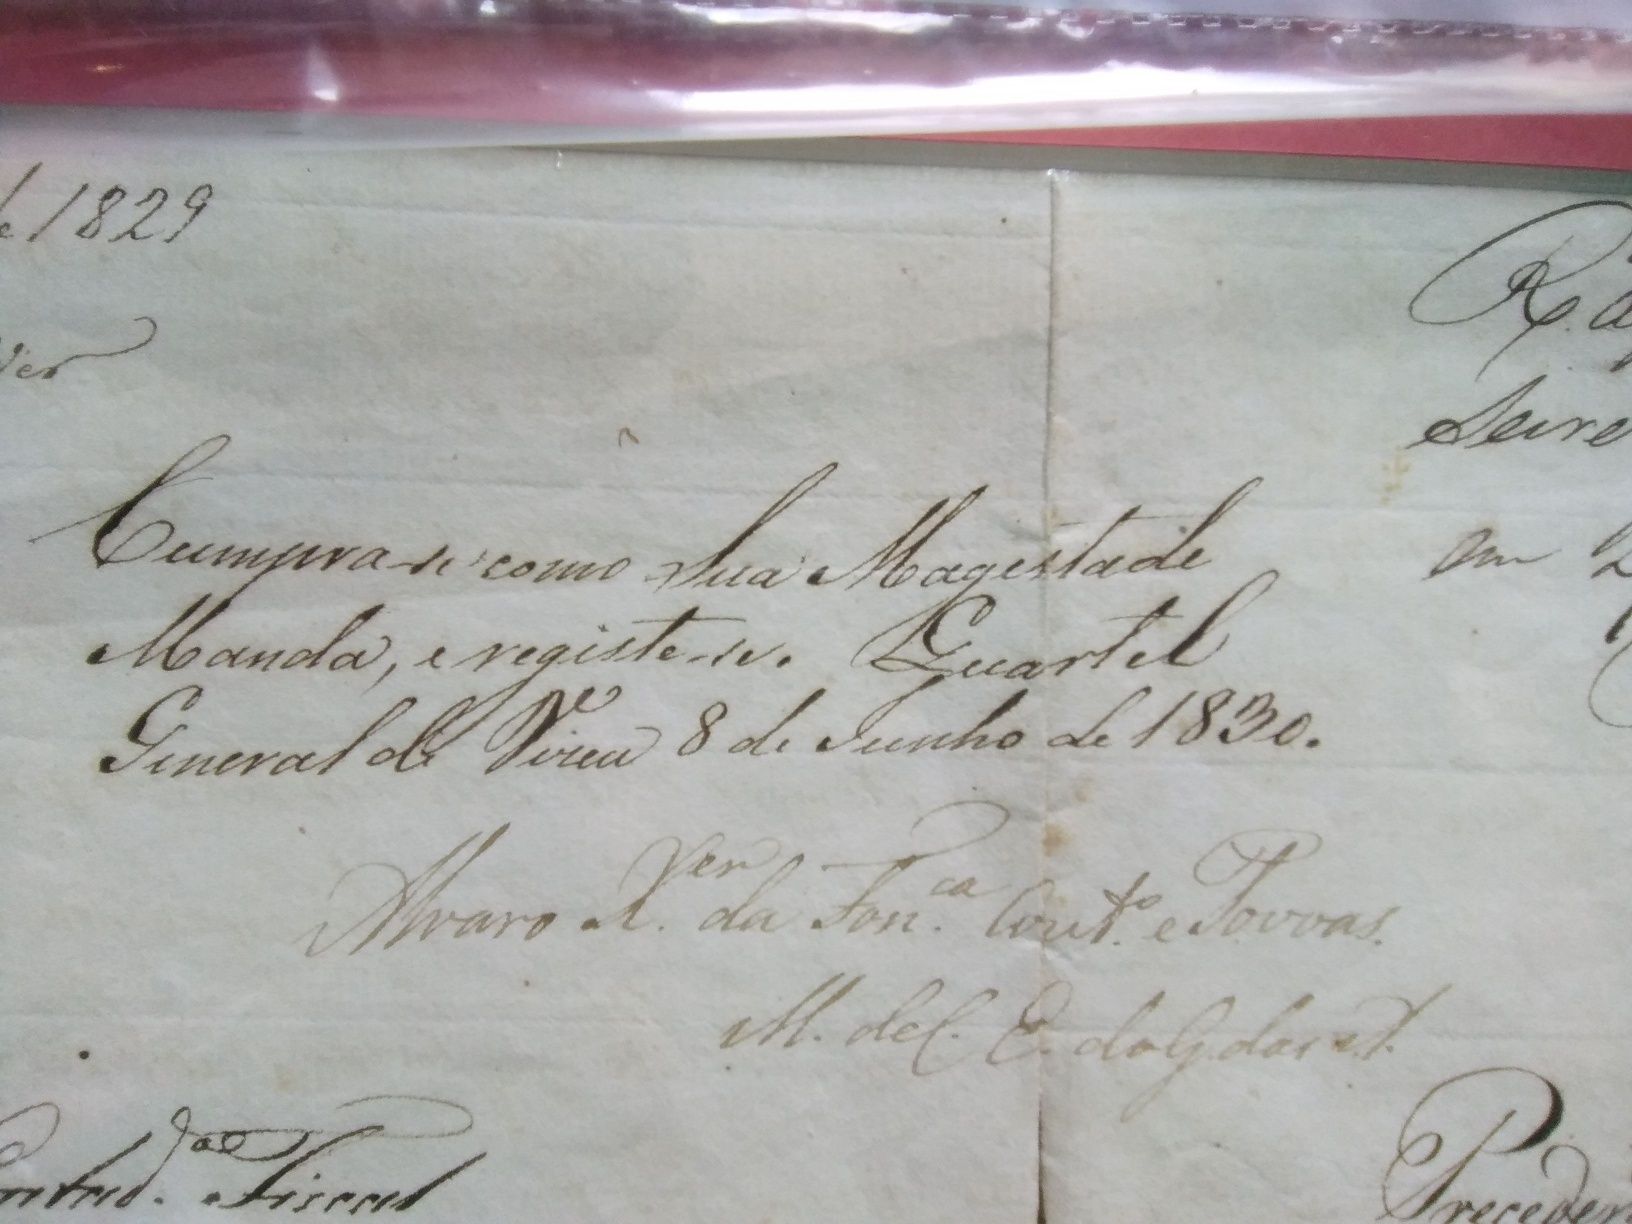 1829
Cumpra-se como Sua Magestade
Manda, e registe-se. Quartel
General de Vizeu 8 de Junho de 1830.
Alvaro X.ver da Fon.ca Cout.º e Povoas.
M. de C. E. do G. das A.
Fiscal